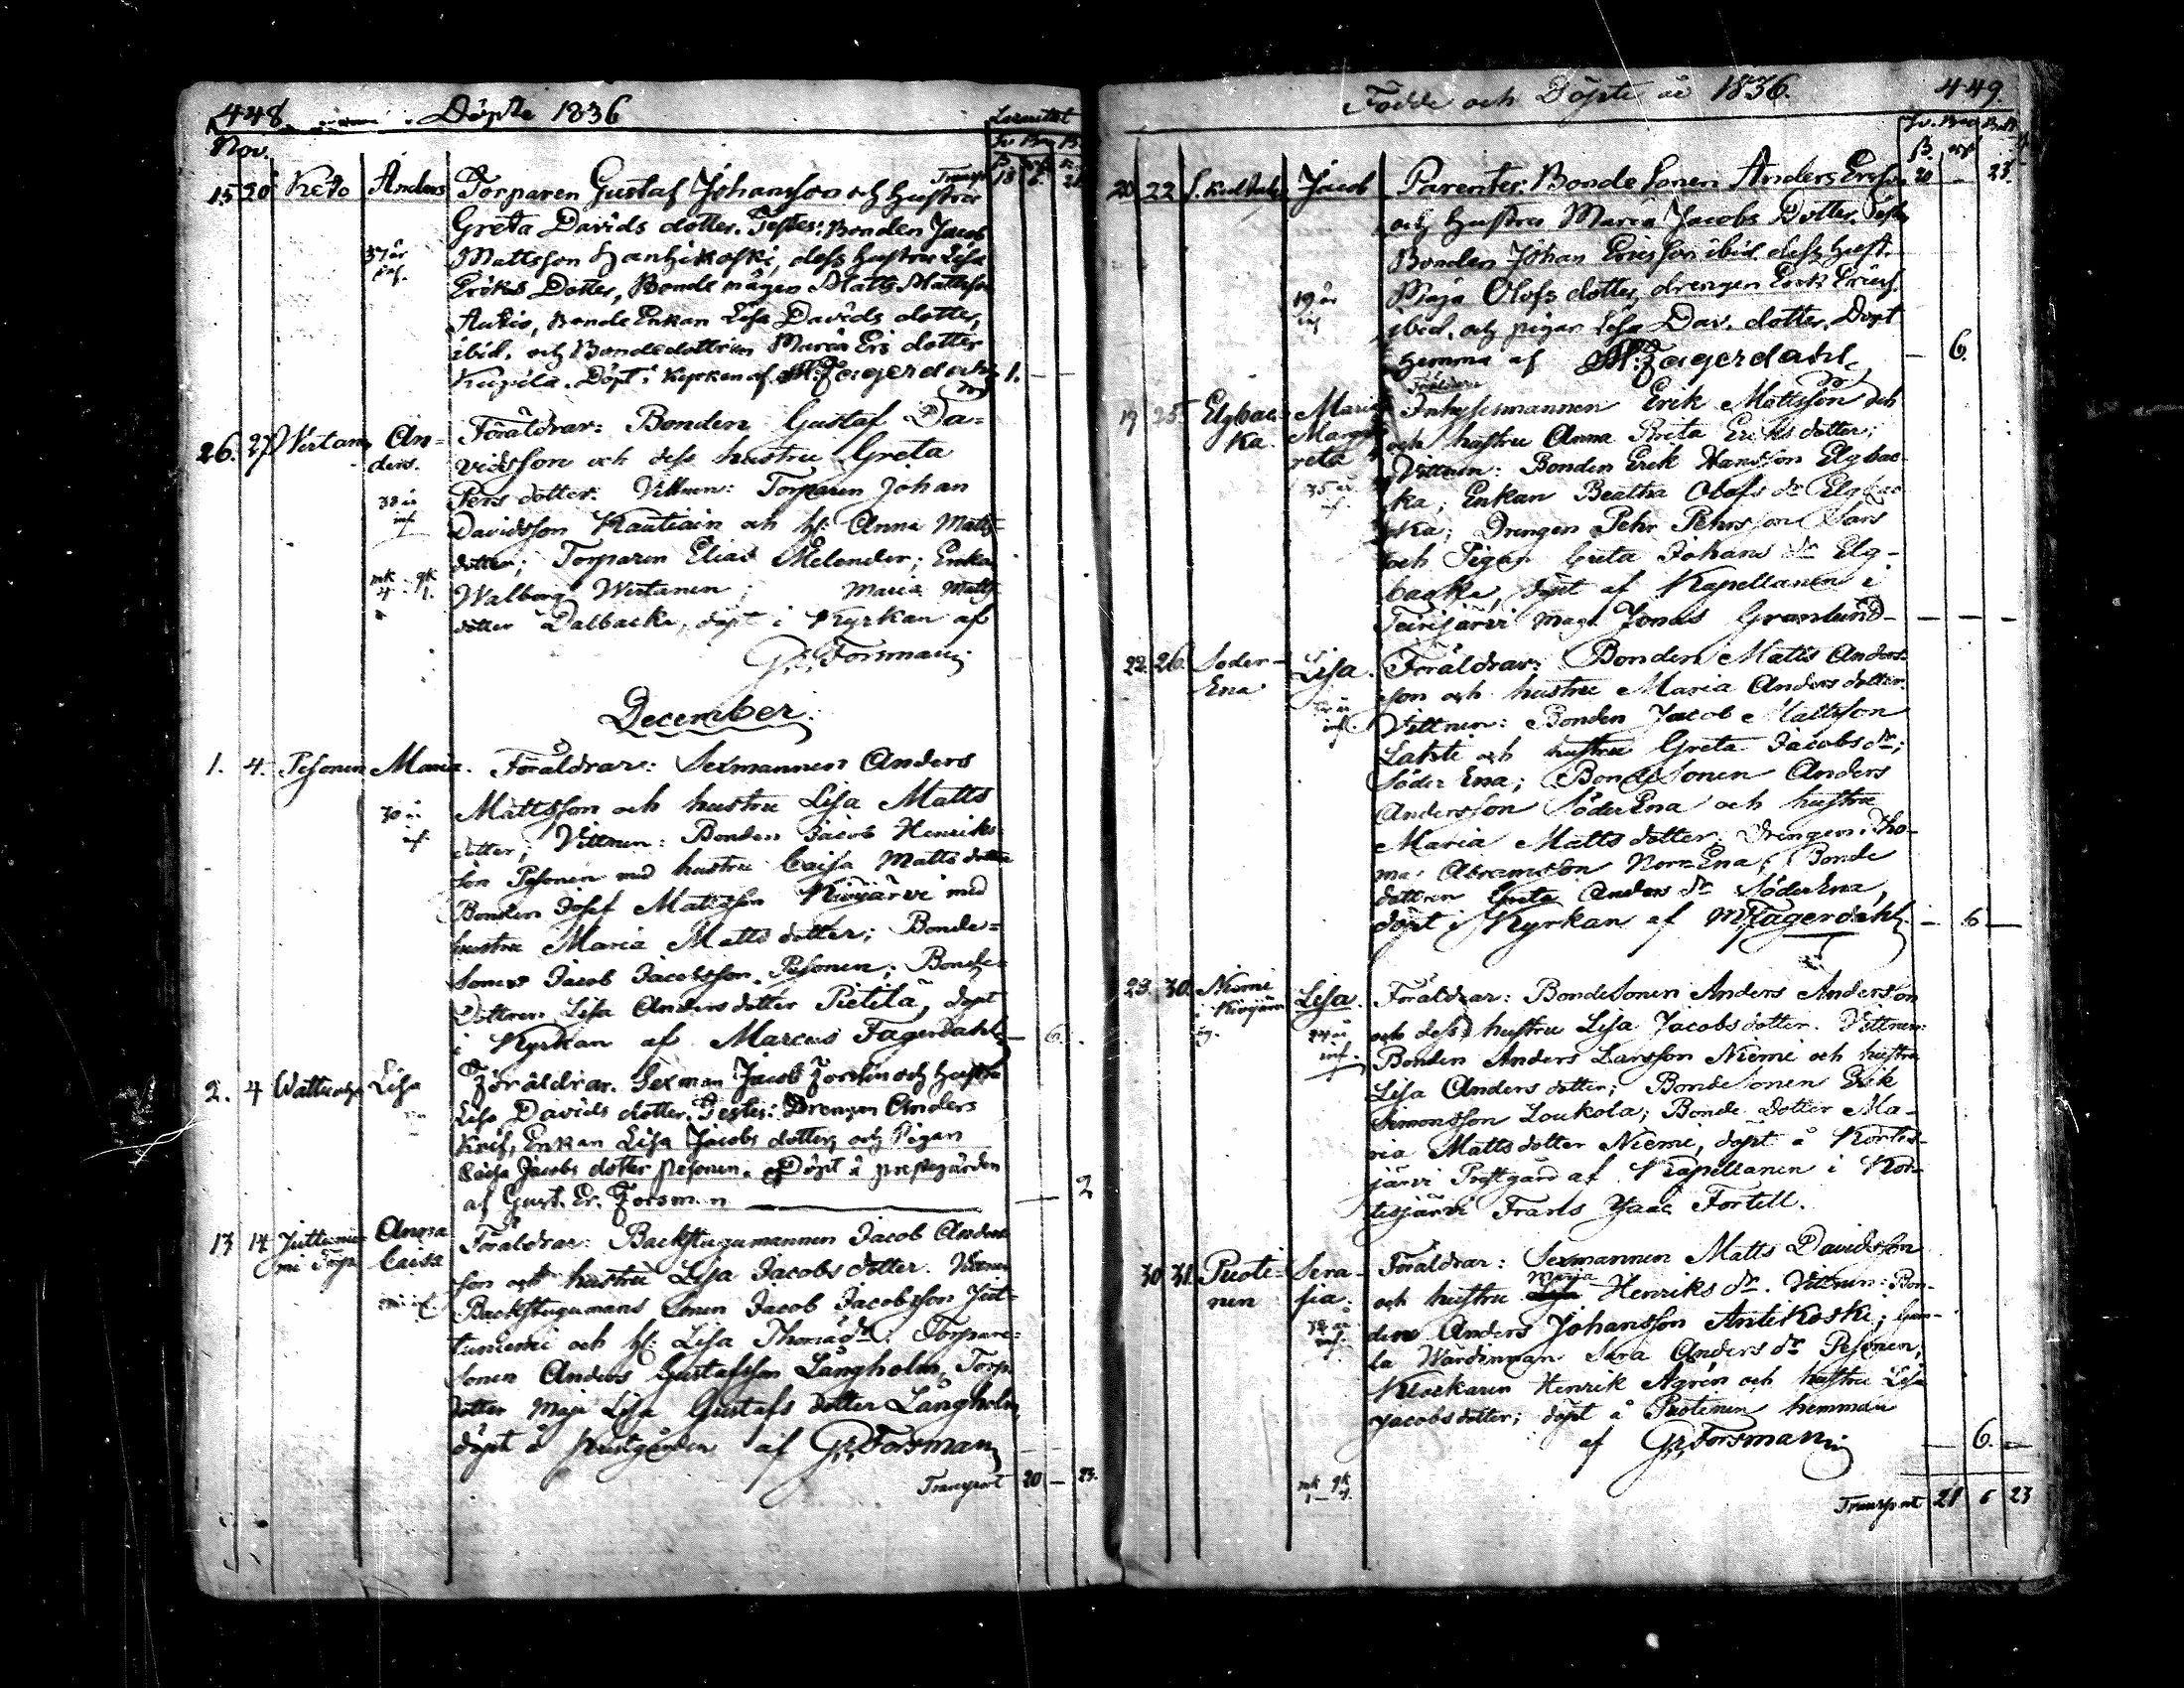 448 Döpte 1836
Nov. Transp. 18 6. 21
15 20 Keto Anders Torparen Gustaf Johansson och hustru
Greta Davids dotter. Testes: Bonden Jacob
37 år Mattsson Hanhikoski, dess hustru Lisa
Eriks Dotter, Bonde mågen Matts Mattsson
Aukio, Bonde Enkan Lisa Davids dotter,
ibid. och Bondedottren Maria Ers dotter
Kupila. Döpt i kyrkan af M: Fagerdahl 1. —
26. 27 Wirtanen An- Föräldrar: Bonden Gustaf Da-
ders. vidsson och dess hustru Greta
38 år Pers dotter. Vittnen: Torparen Johan
inf. Davidsson Kautiain och h: Anna Matts
dotter; Torparen Elias Melender; Enkan
mk qk Walborg Wirtanen; Maria Matts
4 1. dotter Dalbacka, döpt i Kyrkan af
G. E. Forsman
December.
1. 4. Pesonen Maria. Föräldrar: Sexmannen Anders
30 år Mattsson och hustru Lisa Matts
inf. dotter; Vittnen: Bonden Jacob Henriks
son Pesonen med hustru Caisa Matts dotter
Bonden Josef Mattsson Kivijärvi med
hustru Maria Matts dotter; Bonde-
sonen Jacob Jacobsson Pesonen; Bonde-
Dottren Lisa Anders dotter Pietilä, döpt
i Kyrkan af Marcus Fagerdahl — 6.
2. 4 Lisa Föräldrar. Sexman Jacob Forslin och hustru
Lisa Davids dotter. Testes: Drengen Anders
Knif, Enkan Lisa Jacobs dotter, och Pigan
Caisa Jacobs dotter Pesonen. Döpt å prestgården
af Gust. Er. Forsman — 2
13 14 Juttunie- Anna Föräldrar: Backstugumannen Jacob Anders
mi Torp Caisa son och hustru Lisa Jacobs dotter. Vittnen
Backstugumans Sonen Jacob Jacobsson Jut-
tuniemi och h: Lisa Thomædr; Torpare-
sonen Anders Gustafsson Långholm, Torp.
dotter Maja Lisa Gustafs dotter Långholm,
döpt å prestgården af G. E. Forsman
Transport 20 — 23.
Födde och Döpte år 1836. 449.
20 22 Jacob Parentes: Bonde Sonen Anders Ersson 20 — 23.
och hustru Maria Jacobs Dotter. Test:
Bonden Johan Ericsson ibid. dess hust.
19 år Maja Olofs dotter, drengen Erik Ericss.
inf ibid. och pigan Lisa Dav. dotter. Döpt
hemma af M: Fagerdahl — 6.
Föräldrar
19 25. Elgbac- Maria Inhysesmannen Erik Mattsson och
ka. Marga- och hustru Anna Greta Eriks dotter;
reta Vittnen: Bonden Erik Hansson Elgbac-
35 år ka; Enkan Beatha Olofs dr Elgbac
inf. ka; Drengen Pehr Pehrsson Sars
och Pigan Greta Johans dr Elg-
backa, döpt af Kapellanen i
Terijärvi Mag. Jonas Granlund — — —
22. 26. Söder- Lisa. Föräldrar: Bonden Matts Anders-
Ena son och hustru Maria Anders dotter.
inf. Vittnen: Bonden Jacob Mattsson
Lahti och hustru Greta Jacobs dr;
Söder Ena; Bonde Sonen Anders
Andersson Söder Ena och hustru
Maria Matts dotter; Drengen Tho-
mas Abramsson Norr Ena; Bonde
dottren Greta Anders dr Söder Ena,
döpt i Kyrkan af M. Fagerdahl. — 6 —
29. 30. Niemi Lisa. Föräldrar: Bondesonen Anders Andersson
i Kivijärvi och dess hustru Lisa Jacobs dotter. Vittnen:
inf. Bonden Anders Larsson Niemi och hustru
Lisa Anders dotter; Bondesonen Erik
Simonsson Loukola; Bonde dotter Ma-
ria Matts dotter Niemi, döpt å Kortes-
järvi Prestgård af Kapellanen i Kor-
tesjärvi Frans Isaac Fortell.
30 31. Puoti- Sera- Föräldrar: Sexmannen Matts Davidsson
nen fia. och hustru Maria Henriks dr. Vittnen: Bon-
inf. den Anders Johansson Antikoski; Gam-
la Wärdinnan Sara Anders dr Pesonen;
Klockaren Henrik Ågrén och hustru Lisa
Jacobs dotter; döpt å Puotinen hemman
af G. E. Forsman — 6. —
mk qk
1 — 4.
Transport 21 6 23